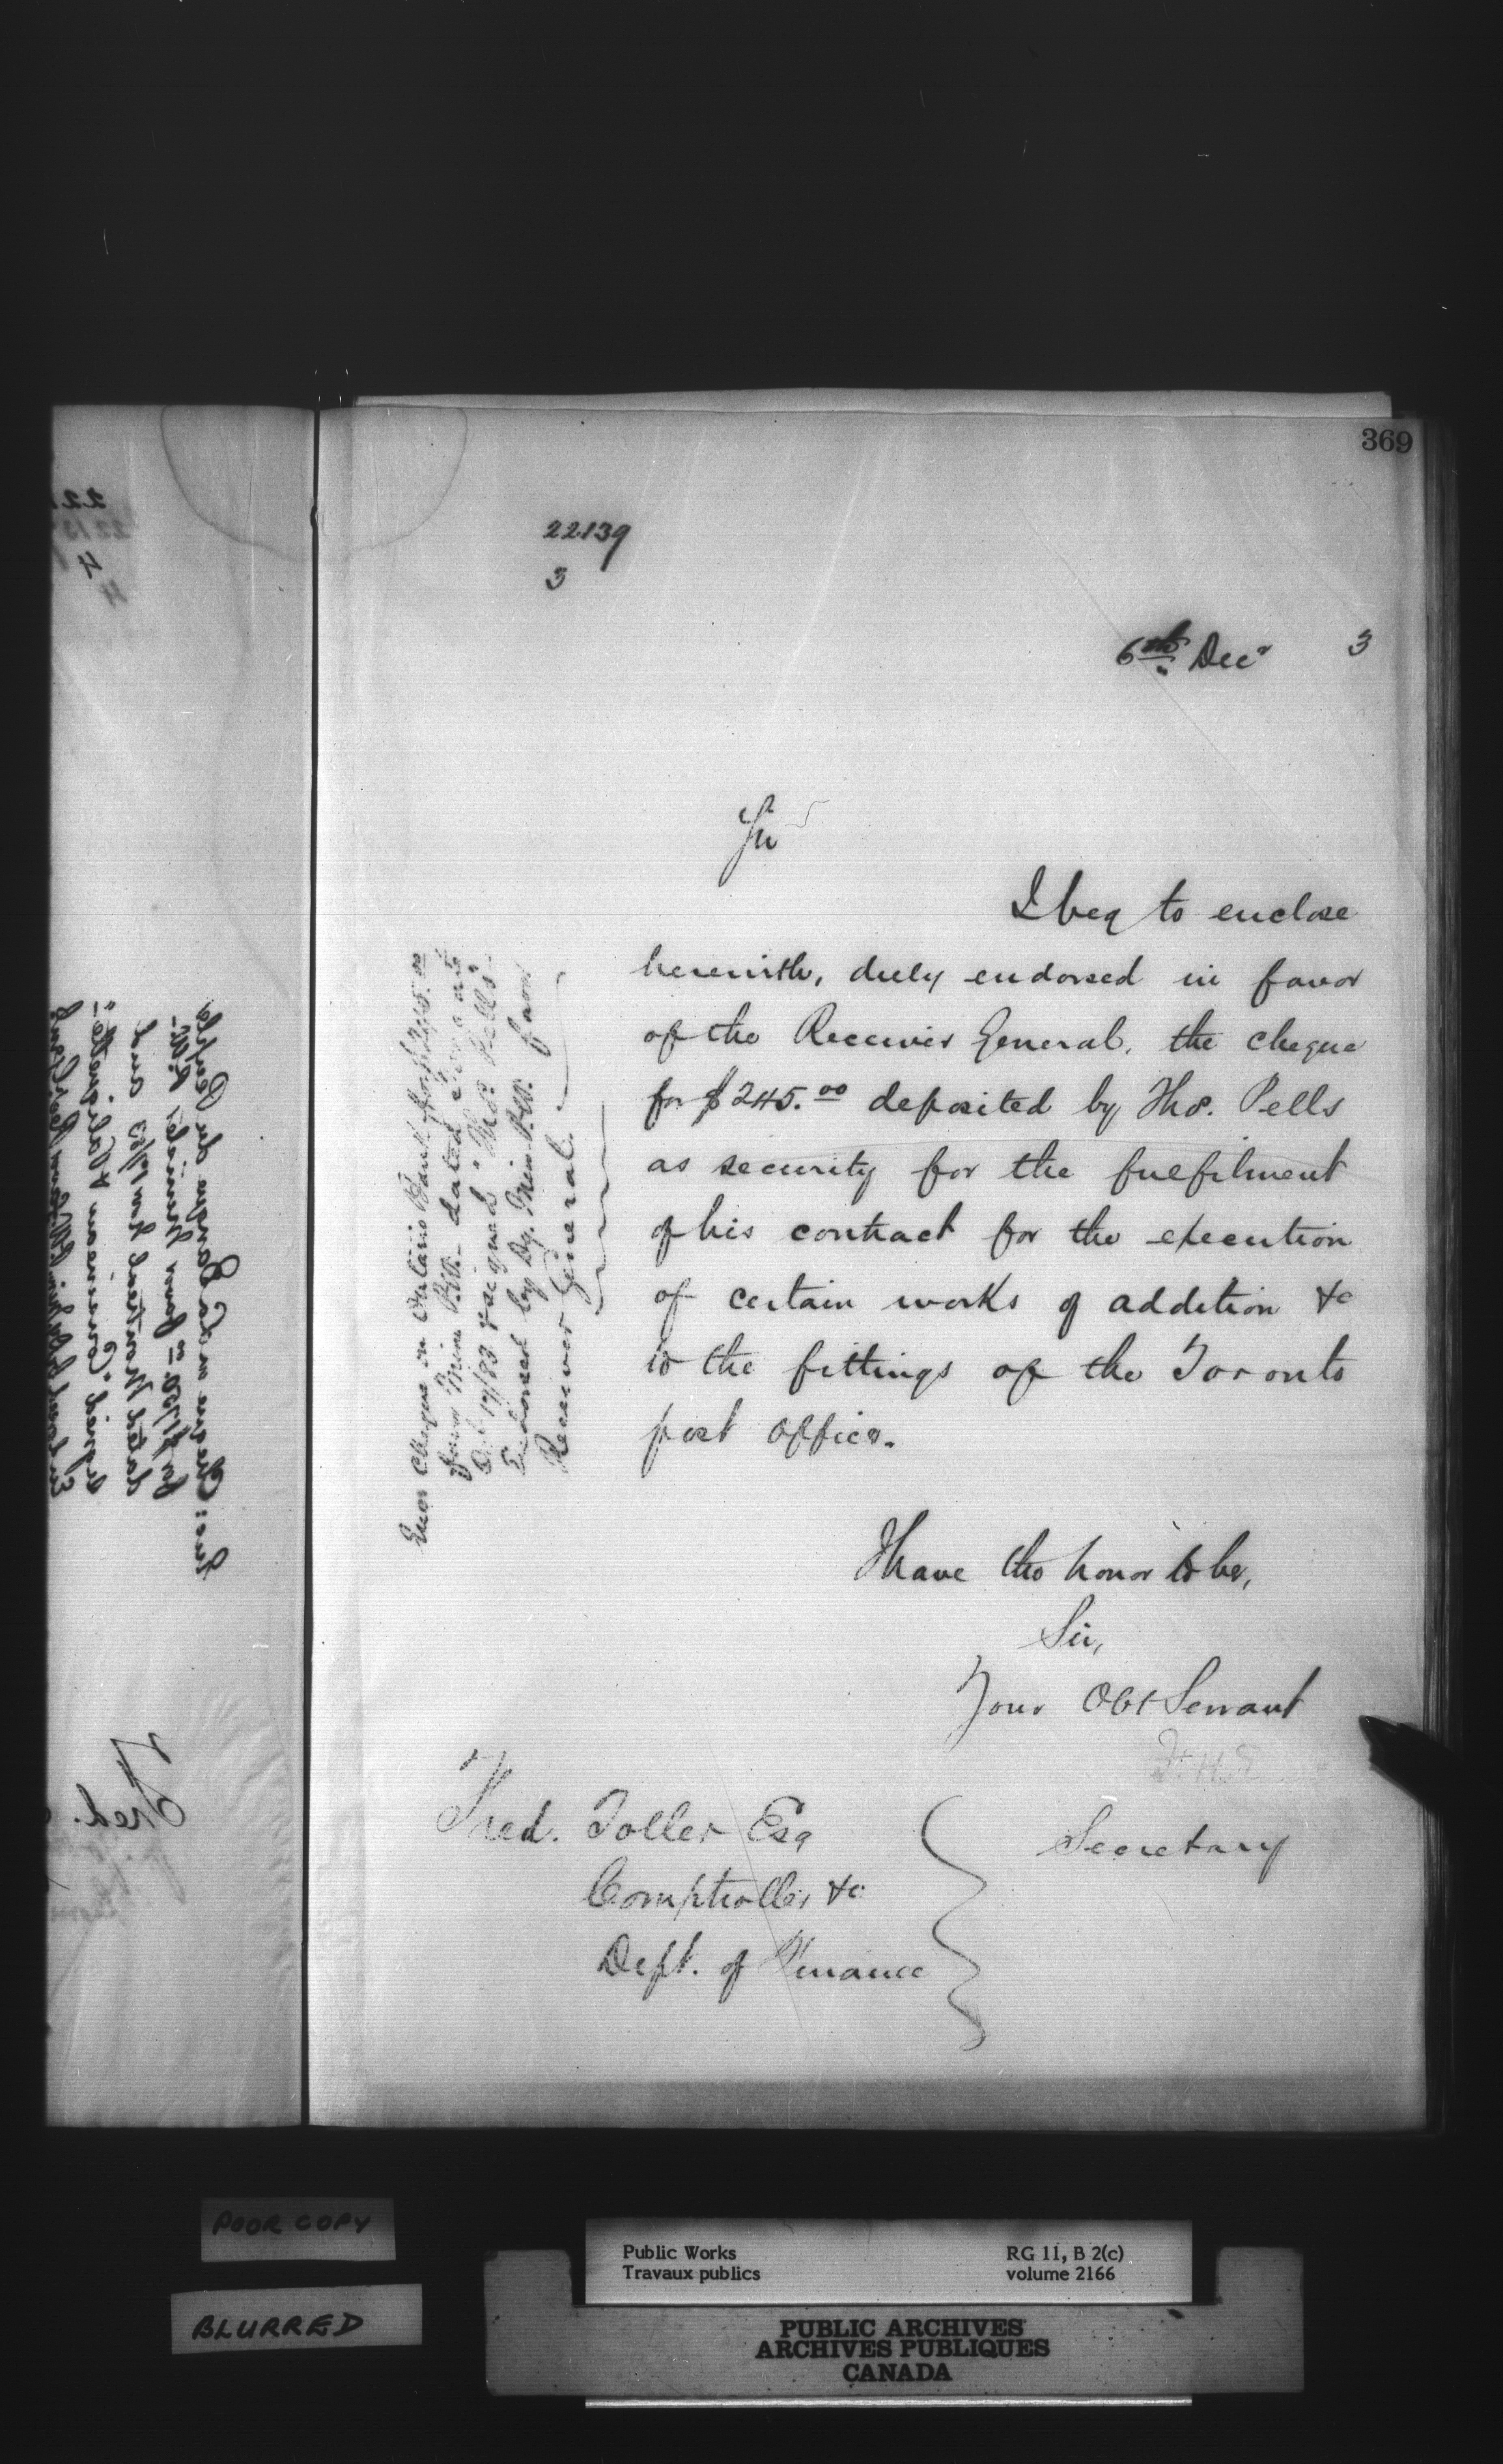 369
22139
3
6th Decr 3
Sir
I beg to enclose
herewith, duly endorsed in favor
of the Receiver General, the cheque
for $245.00 deposited by Thos. Pells
as security for the fulfilment
of his contract for the execution
of certain works of addition &c
to the fittings of the Toronto
post office.
I have the honor to be,
Sir,
Your Obt Servant
Secretary
Fred. Toller Esq
Comptroller &c
Dept. of Finance
Encs Cheque on Ontario Bank for $245.00
favor Minr P.W. dated
Oct 19/83 & signed "Thos. Pells."
Endorsed by Dy. Min. P.W. favor
Receiver General.
Enc: Cheque on La Banque du Peuple
for $1750.00 favor Minister P.W.
dated Montreal Nov 19/83 and
signed "Cousineau & Valiquette"
Fred.
POOR COPY
BLURRED
Public Works
Travaux publics
RG 11, B 2(c)
volume 2166
PUBLIC ARCHIVES
ARCHIVES PUBLIQUES
CANADA